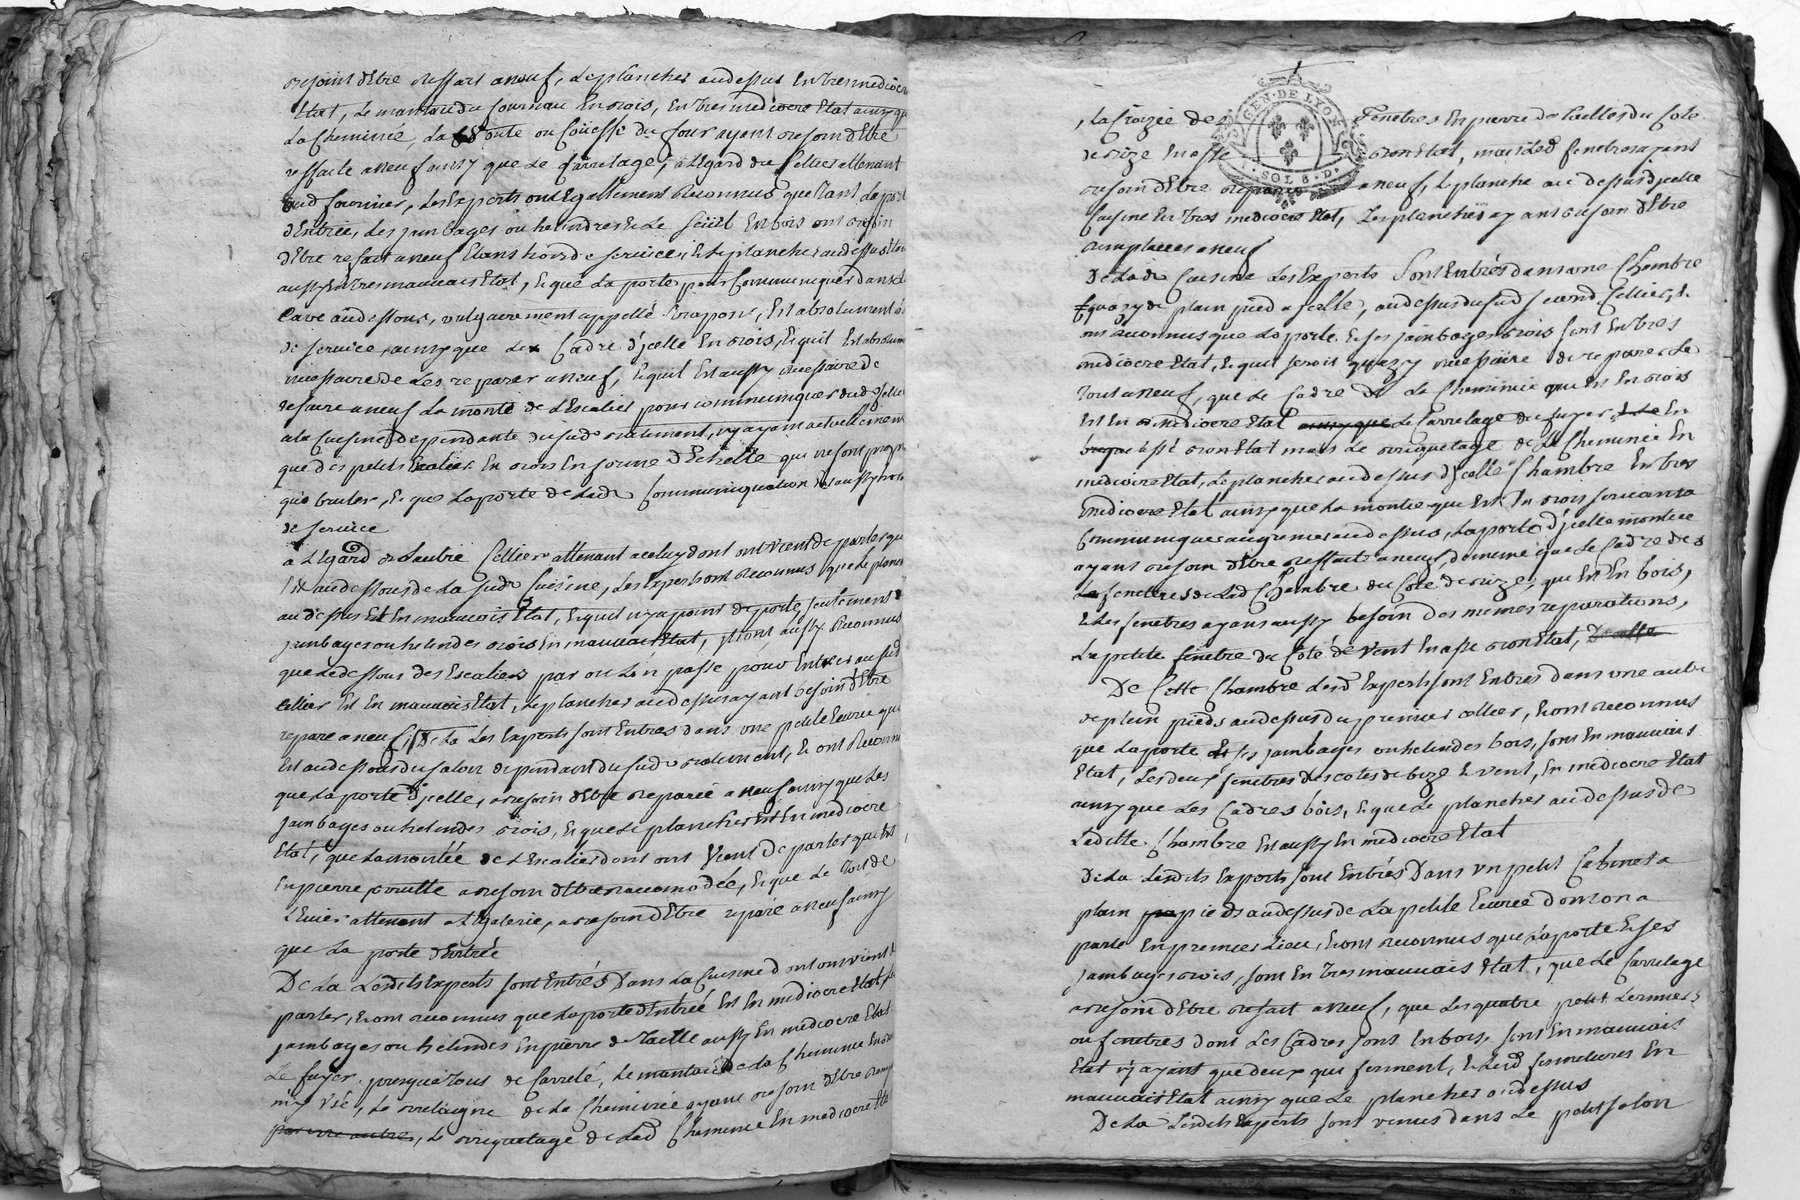 besoint d'Etre reffait aneuf, Le plancher audessus En tres mediocre
Etat, Le manteau du fourneau En bois, En tres mediocre Etat ainsy que
La Cheminée, La Voute ou Coiffe du four ayant besoin d'Etre
reffaite aneuf ainsy que Le Carrelage, a L'Egard du Cellier attenant
aud fournier, Les Experts ont Egallement Reconnus que tant La porte
d'Entrée, Les jambages ou helindres & Le Seüil En bois ont besoin
d'Etre refait aneuf Etans hors de service, & Le plancher audessus Etant
aussy En tres mauvais Etat, & que La porte pour Communiquer dans La
Cave au dessous, vulgairement appellé trapon, Est absolument
de service, ainsy que Le Cadre d'jcelle En bois, & quil Est absolument
necessaire de Les reparer aneuf, & quil Est aussy necessaire de
refaire aneuf La monté de L'Escalier pour communiquer dud Cellier
a la Cuisine dependante du sud batiment, n'y ayant actuellement
que des petits Escalier En bois En forme d'Echelle qui ne sont propre
qu'a bruler, & que La porte de Lad Communiquation Est aussy hors
de service
a L'Egard de L'autre Cellier attenant aceluy dont on Vient de parler qui
Est audessous de La sud Cuisine, Les Experts ont Reconnus que Le plancher
au dessus Est En mauvais Etat, & quil n'y a point de porte, seulement
jambages ou helindes bois En mauvais Etat, jls ont aussy Reconnus
que Le dessous des Escaliers par ou Lon passe pour Entrer au sud
Cellier Est En mauvais Etat, Le plancher audessus ayant besoin d'Etre
reparé aneuf, De La Les Experts sont Entrés dans une petite Ecurie qui
Est audessous du salon dependant du sud batiment, & ont Reconnu
que La porte d'jcelle, a besoin d'Etre reparée aneuf ainsy que Les
jambages ou helindes bois, & que Le plancher Est En mediocre
Etat, que La montée de L'Escalier dont ont Vient de parler qui Est
En pierre brutte a besoin d'Etre racomodée, & que Le Toit de
L'Evier attenant a La Galerie, a besoin d'Etre reparé aneuf ainsy
que La porte d'Entrée
De La Lesdits Experts sont Entrés Dans La Cuisine dont on vient de
parler, & ont reconnus que La porte d'Entrée Est En mediocre Etat,
jambages ou helindes En pierre de Taille aussy En mediocre Etat
Le foyer presque tous de Carrelé, Le manteau de La Cheminée En bois
my Usé, La de La Cheminée ayant besoin d'Etre
par une autres, Le briquetage de Lad Cheminée En mediocre Etat
GEN. DE LYON
SOL 8. D.
, La Croizée de Fenetres En pierre de tailles du Coté
de bize En asse bon Etat, mais Led fenetres ayant
besoin d'Etre reparé aneuf, Le planche au dessus d'jcelle
Cuisine En tres mediocre Etat, Les planches ayant besoin d'Etre
remplacées aneuf
De Lad Cuisine Les Experts Sont Entrés dans une Chambre
quazy de plain pied a jcelle, audessus du sud second Cellier, &
ont reconnus que La porte & ses jambages bois sont En tres
mediocre Etat, & quil seroit quazy necessaire de reparer Le
tout aneuf, que Le Cadre de La Cheminée qui Est En bois
Est En mediocre Etat ainsy que Le Carrelage du foyer & Le En
brique Est bon Etat mais Le briquetage de La Cheminée En
mediocre Etat, Le plancher au dessus d'jcelle Chambre En tres
mediocre Etat ainsy que La montée qui Est En bois servant a
Communiquer au grenier audessus, La porte d'jcelle montée
ayant besoin d'Etre reffaite aneuf, de meme que Le Cadre des
Les fenetres de Lad Chambre du Coté de bize, qui Est En bois,
& Les fenetres ayans aussy besoin des memes reparations,
La petite fenetre du Coté de Vent En asse bon Etat,
De Cette Chambre Lesd Experts sont Entrés dans une autre
de plain pieds audessus du premier cellier, & ont reconnus
que La porte & ses jambages ou helindes bois, sont En mauvais
Etat, Les deux fenetres des cotes de bize & vent, En mediocre Etat
ainsy que Les Cadres bois, & que Le plancher au dessus de
Laditte Chambre Est aussy En mediocre Etat
De La Lesdits Experts sont Entrés Dans un petit Cabinet a
plain pieds audessus de La petite Ecurie dont on a
parlé En premier Lieu, & ont reconnus que La porte & ses
jambages bois, sont En tres mauvais Etat, que Le Carrelage
a besoin d'Etre refait aneuf, que Les quatre petit Lermiers
ou fenetres dont Les Cadres sont En bois, sont En mauvais
Etat n'y ayant que deux qui ferment, & Lesd fermetures En
mauvais Etat ainsy que Le plancher au dessus
De La Lesdits Experts sont venus dans Le petit salon